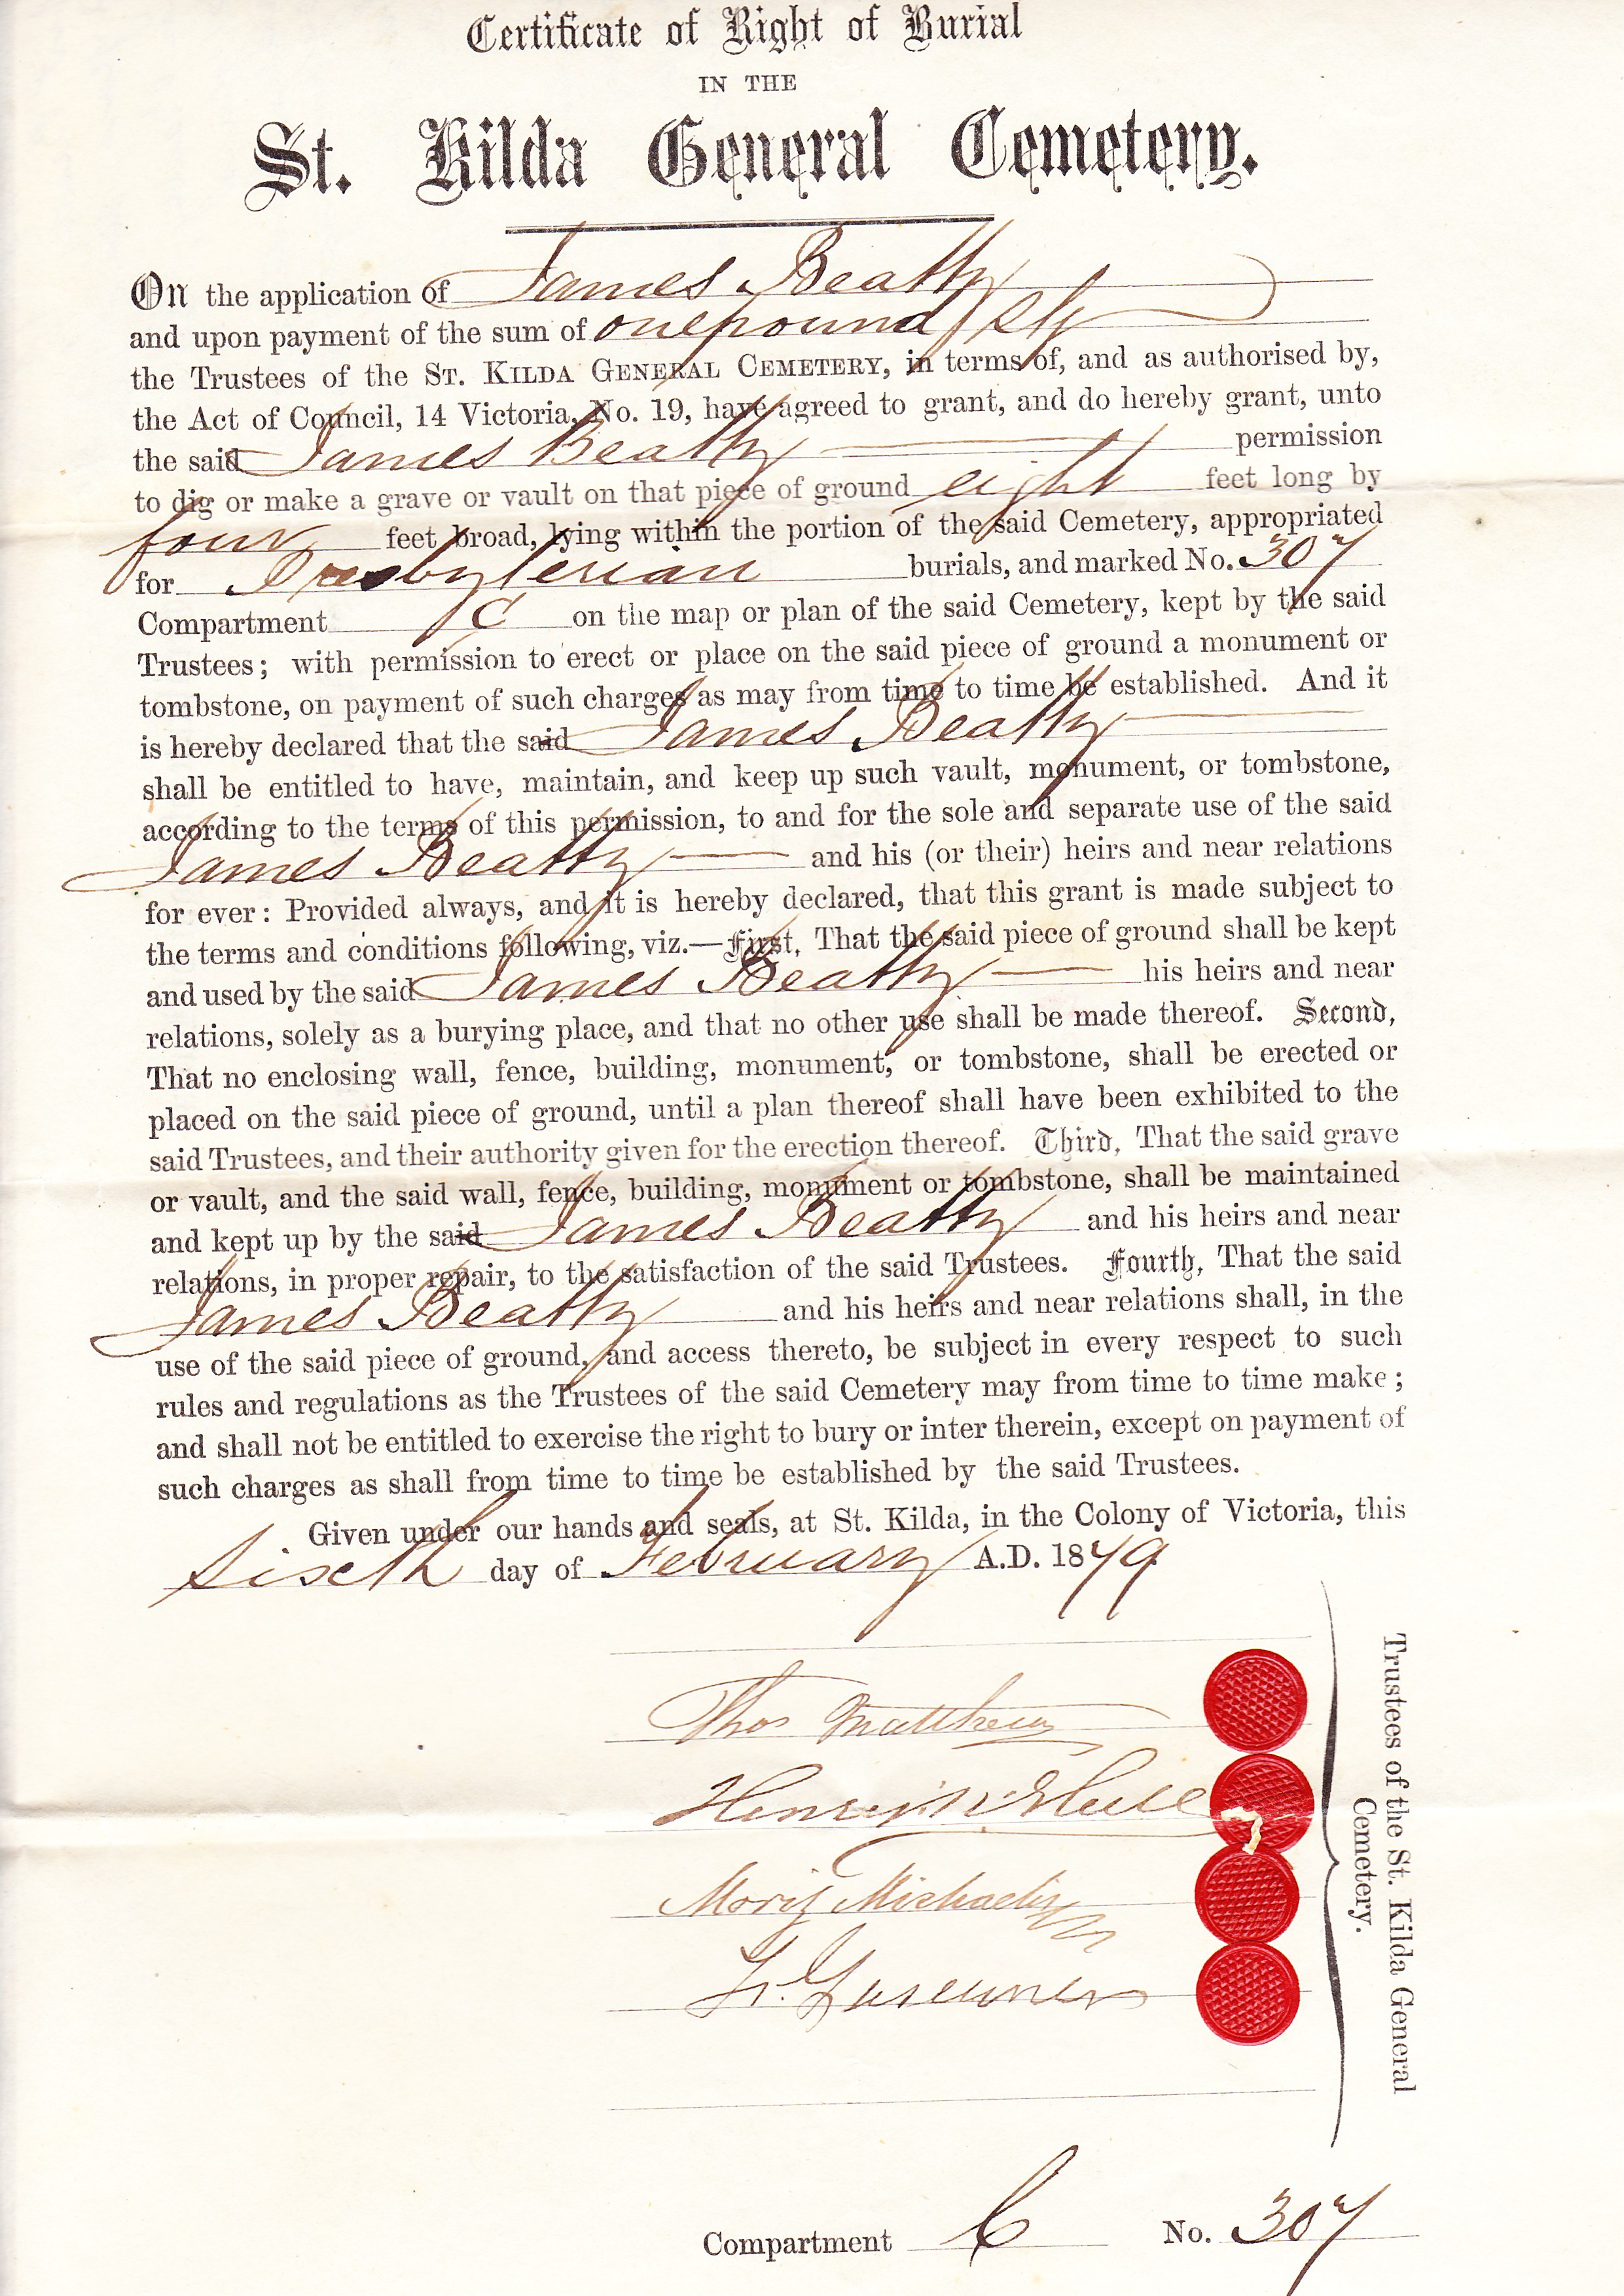 Certificate of Right of Burial
IN THE
St. Kilda General Cemetery.
On the application of James Beatty
and upon payment of the sum of one pound Stg
the Trustees of the ST. KILDA GENERAL CEMETERY, in terms of, and as authorised by,
the Act of Council, 14 Victoria, No. 19, have agreed to grant, and do hereby grant, unto
the said James Beatty permission
to dig or make a grave or vault on that piece of ground eight feet long by
four feet broad, lying within the portion of the said Cemetery, appropriated
for Presbyterian burials, and marked No. 307
Compartment C on the map or plan of the said Cemetery, kept by the said
Trustees; with permission to erect or place on the said piece of ground a monument or
tombstone, on payment of such charges as may from time to time be established. And it
is hereby declared that the said James Beatty
shall be entitled to have, maintain, and keep up such vault, monument, or tombstone,
according to the terms of this permission, to and for the sole and separate use of the said
James Beatty and his (or their) heirs and near relations
for ever: Provided always, and it is hereby declared, that this grant is made subject to
the terms and conditions following, viz.—First, That the said piece of ground shall be kept
and used by the said James Beatty his heirs and near
relations, solely as a burying place, and that no other use shall be made thereof. Second,
That no enclosing wall, fence, building, monument, or tombstone, shall be erected or
placed on the said piece of ground, until a plan thereof shall have been exhibited to the
said Trustees, and their authority given for the erection thereof. Third, That the said grave
or vault, and the said wall, fence, building, monument or tombstone, shall be maintained
and kept up by the said James Beatty and his heirs and near
relations, in proper repair, to the satisfaction of the said Trustees. Fourth, That the said
James Beatty and his heirs and near relations shall, in the
use of the said piece of ground, and access thereto, be subject in every respect to such
rules and regulations as the Trustees of the said Cemetery may from time to time make;
and shall not be entitled to exercise the right to bury or inter therein, except on payment of
such charges as shall from time to time be established by the said Trustees.
Given under our hands and seals, at St. Kilda, in the Colony of Victoria, this
sixth day of February A.D. 1879
Thos Matthews
Henry
Moritz Michaelis
Trustees of the St. Kilda General
Cemetery.
Compartment C No. 307